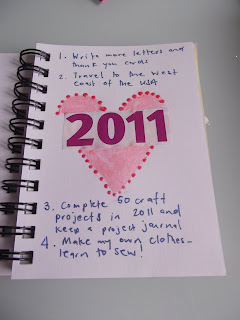 1. Write more letters and
thank you cards
2. Travel to the West
Coast of the USA
2011
3. Complete 50 craft
projects in 2011 and
keep a project journal
4. Make my own clothes -
learn to sew!